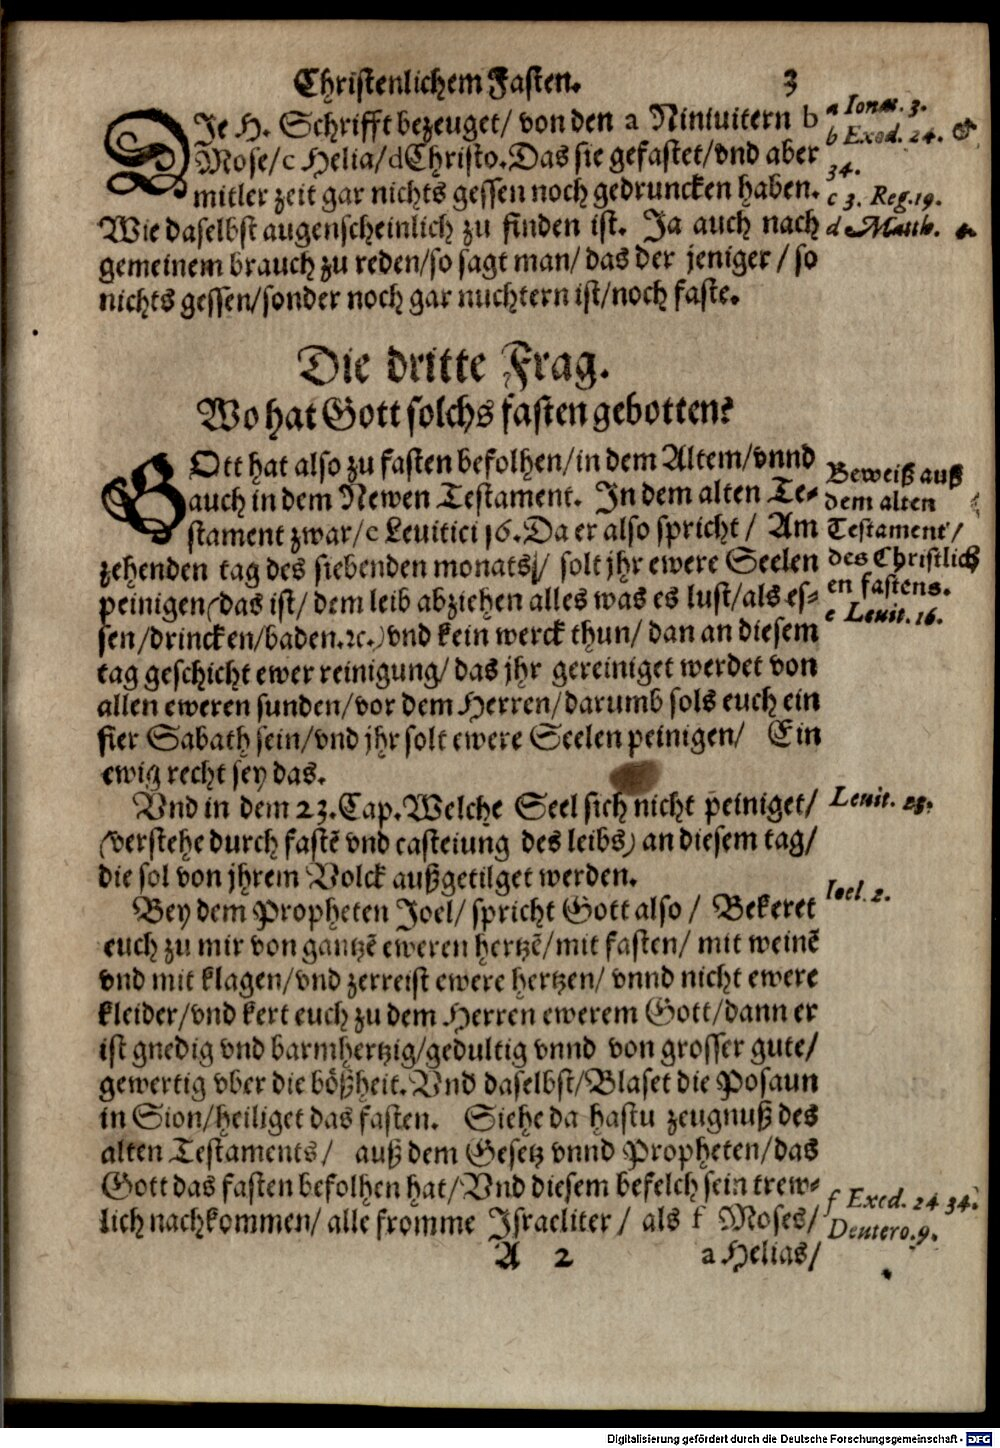 Christenlichem Fasten. 3
DJe H. Schrifft bezeuget/ von den a Niniuitern b
Mose/c Helia/dChristo.Das sie gefastet/vnd aber
mitler zeit gar nichts gessen noch gedruncken haben.
Wie daselbst augenscheinlich zu finden ist. Ja auch nach
gemeinem brauch zu reden/so sagt man/ das der jeniger / so
nichts gessen/sonder noch gar nuchtern ist/noch faste.
a Ionae. 3.
b Exod. 24. &
34.
c 3. Reg.19.
d Matth. 4.
Die dritte Frag.
Wo hat Gott solchs fasten gebotten?
GOtt hat also zu fasten befolhen/in dem Altem/vnnd
auch in dem Newen Testament. Jn dem alten Te-
stament zwar/e Leuitici 16.Da er also spricht / Am
zehenden tag des siebenden monats/ solt jhr ewere Seelen
peinigen(das ist/ dem leib abziehen alles was es lust/als es-
sen/drincken/baden.ꝛc.)vnd kein werck thun/ dan an diesem
tag geschicht ewer reinigung/ das jhr gereiniget werdet von
allen eweren sunden/vor dem Herren/darumb sols euch ein
fier Sabath sein/vnd jhr solt ewere Seelen peinigen/ Ein
ewig recht sey das.
Beweiß auß
dem alten
Testament/
des Christlich
en fastens.
e Leuit. 16.
Vnd in dem 23.Cap.Welche Seel sich nicht peiniget/
(verstehe durch fastē vnd casteiung des leibs) an diesem tag/
die sol von jhrem Volck außgetilget werden.
Leuit. 23.
Bey dem Propheten Joel/ spricht Gott also / Bekeret
euch zu mir von gantzē eweren hertzē/mit fasten/ mit weinē
vnd mit klagen/vnd zerreist ewere hertzen/ vnnd nicht ewere
kleider/vnd kert euch zu dem Herren ewerem Gott/dann er
ist gnedig vnd barmhertzig/gedultig vnnd von grosser gute/
gewertig vber die bößheit.Vnd daselbst/Blaset die Posaun
in Sion/heiliget das fasten. Siehe da hastu zeugnuß des
alten Testaments/ auß dem Gesetz vnnd Propheten/das
Gott das fasten befolhen hat/Vnd diesem befelch sein trew-
lich nachkommen/ alle fromme Jsraeliter / als f Moses/
Ioel. 2.
f Exod. 24 34.
Deutero.9.
A 2 a Helias/
Digitalisierung gefördert durch die Deutsche Forschungsgemeinschaft - DFG